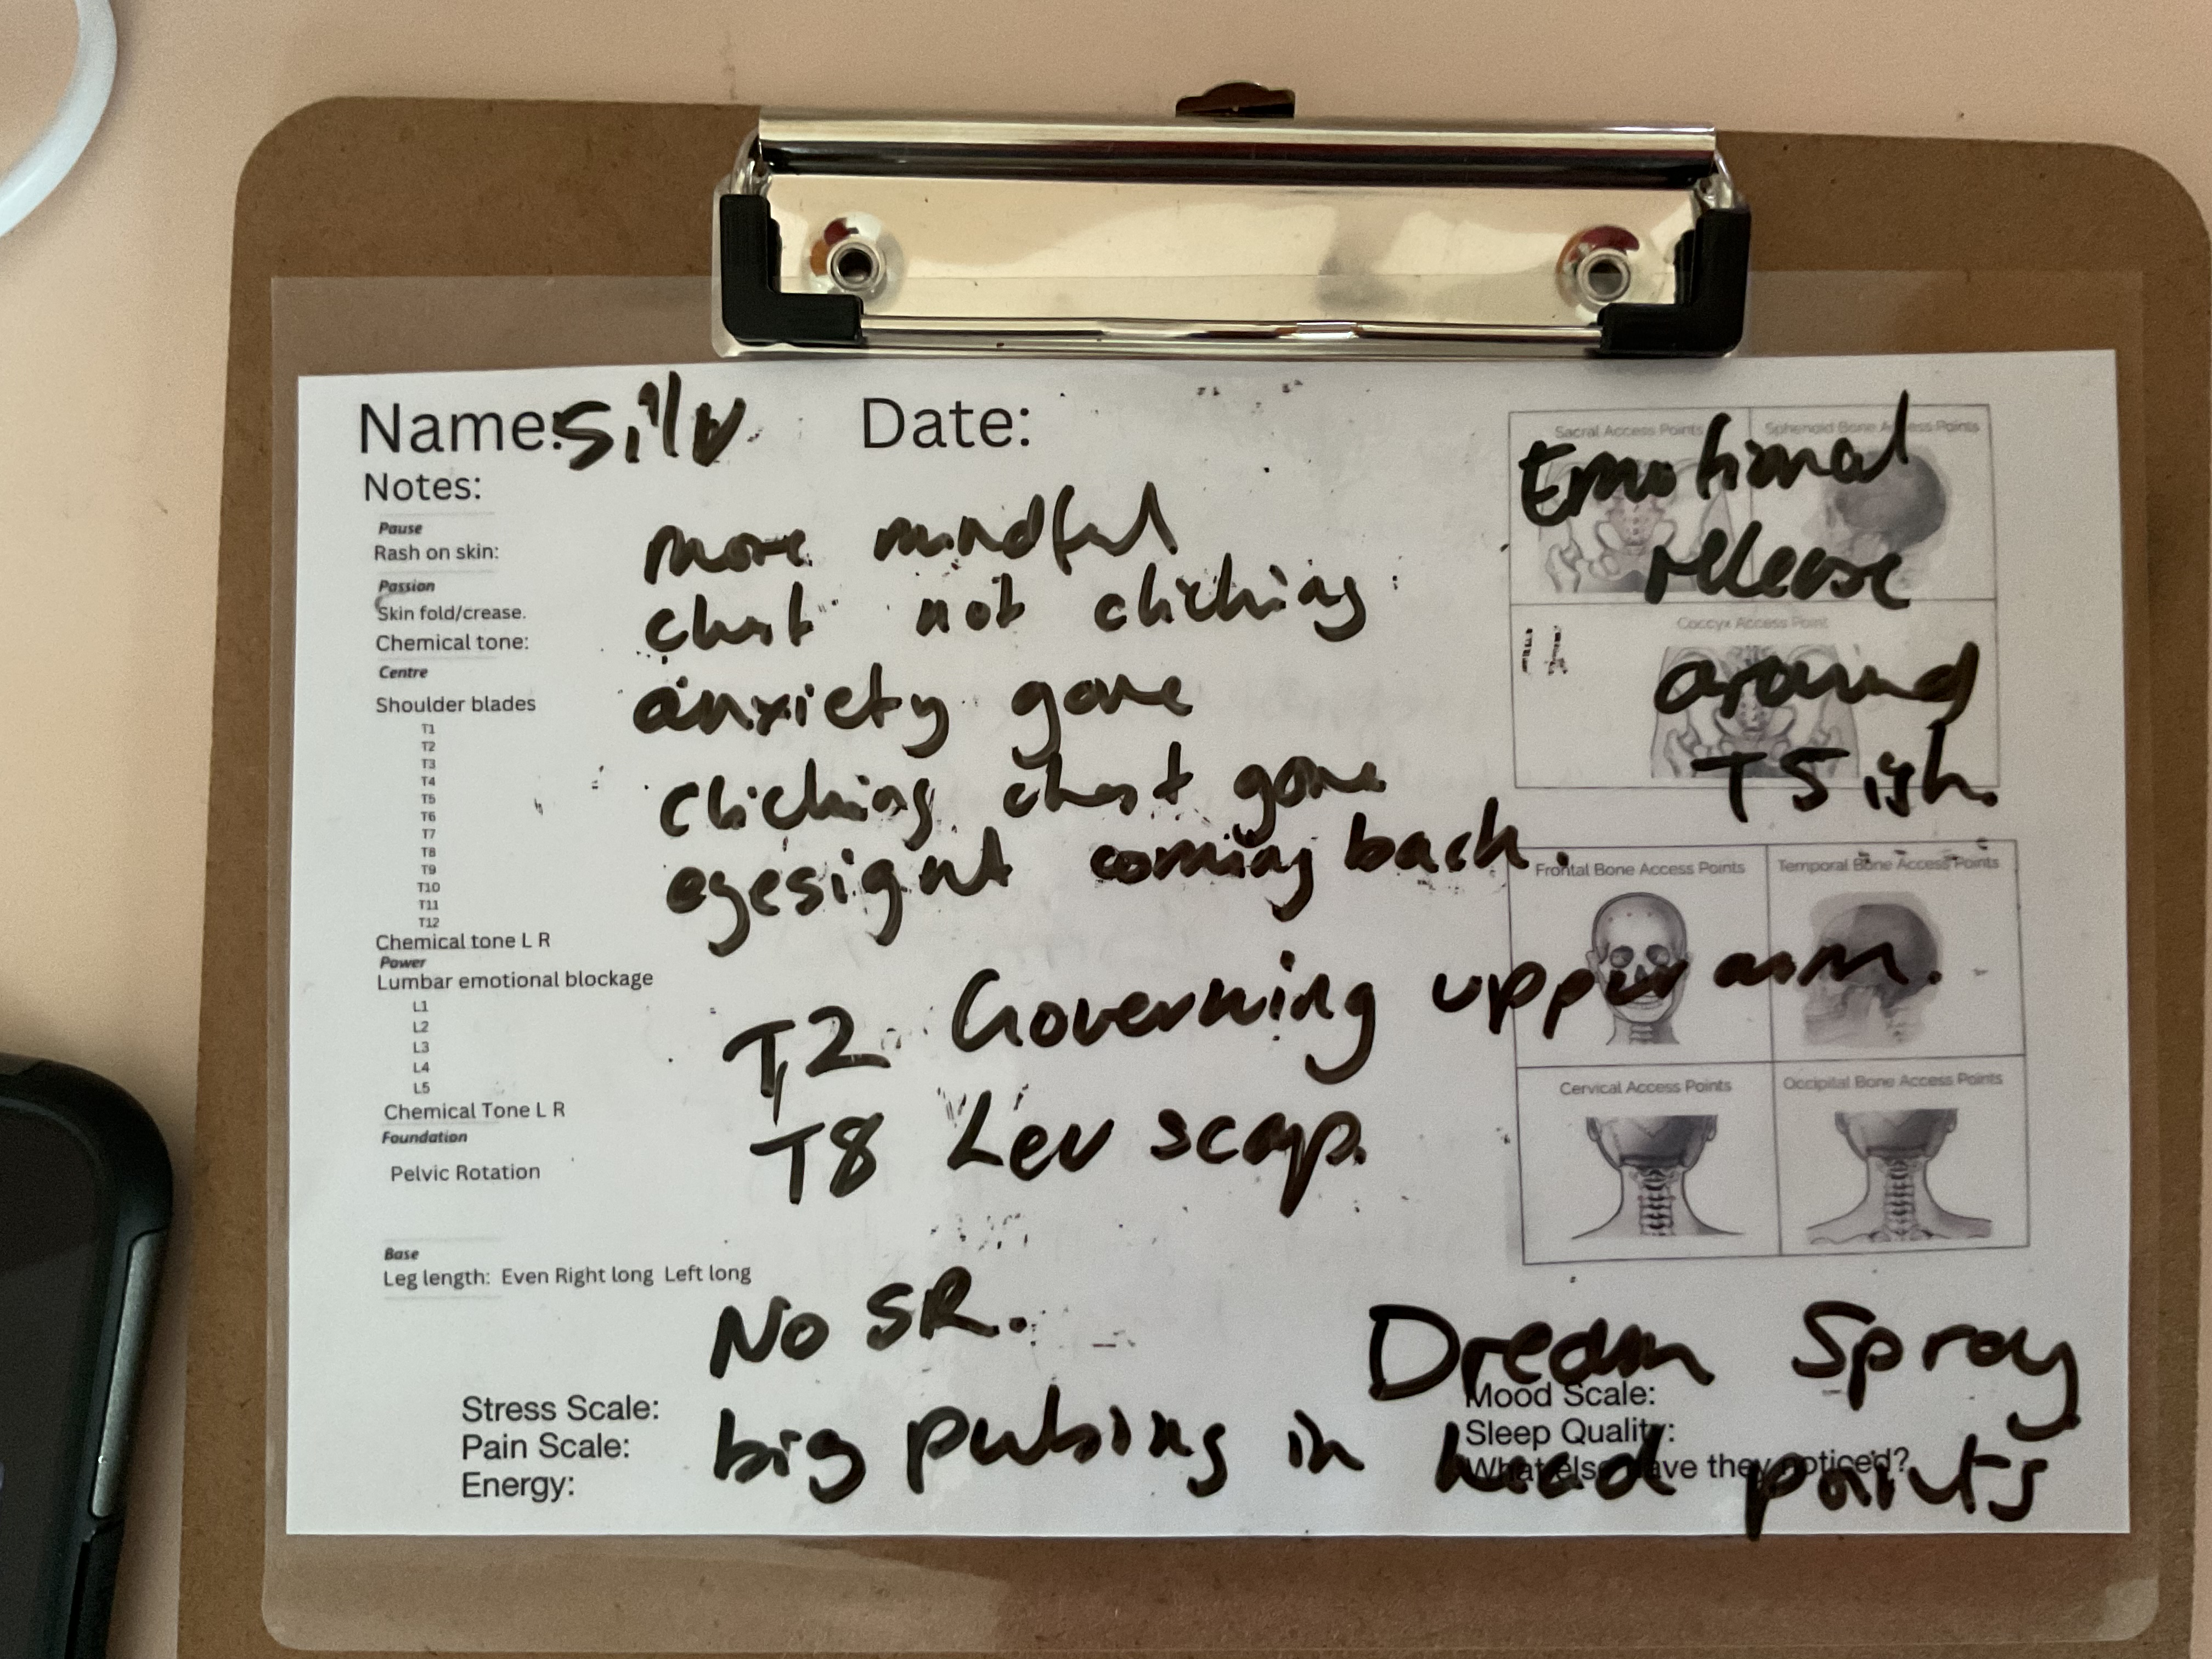 Name: Silv Date:
Notes:
Pause
Rash on skin:
Passion
Skin fold/crease.
Chemical tone:
Centre
Shoulder blades
T1
T2
T3
T4
T5
T6
T7
T8
T9
T10
T11
T12
Chemical tone L R
Power
Lumbar emotional blockage
L1
L2
L3
L4
L5
Chemical Tone L R
Foundation
Pelvic Rotation
Base
Leg length: Even Right long Left long
more mindful
chest not clicking
anxiety gone
clicking chest gone
eyesight coming back.
T2 Governing upper arm.
T8 Lev scap.
No SR.
big pulsing in head points
Sacral Access Points
Sphenoid Bone Access Points
Emotional
release
Coccyx Access Point
around
T5 ish.
Frontal Bone Access Points
Temporal Bone Access Points
Cervical Access Points
Occipital Bone Access Points
Dream Spray
Stress Scale:
Pain Scale:
Energy:
Mood Scale:
Sleep Quality:
What else have they noticed?